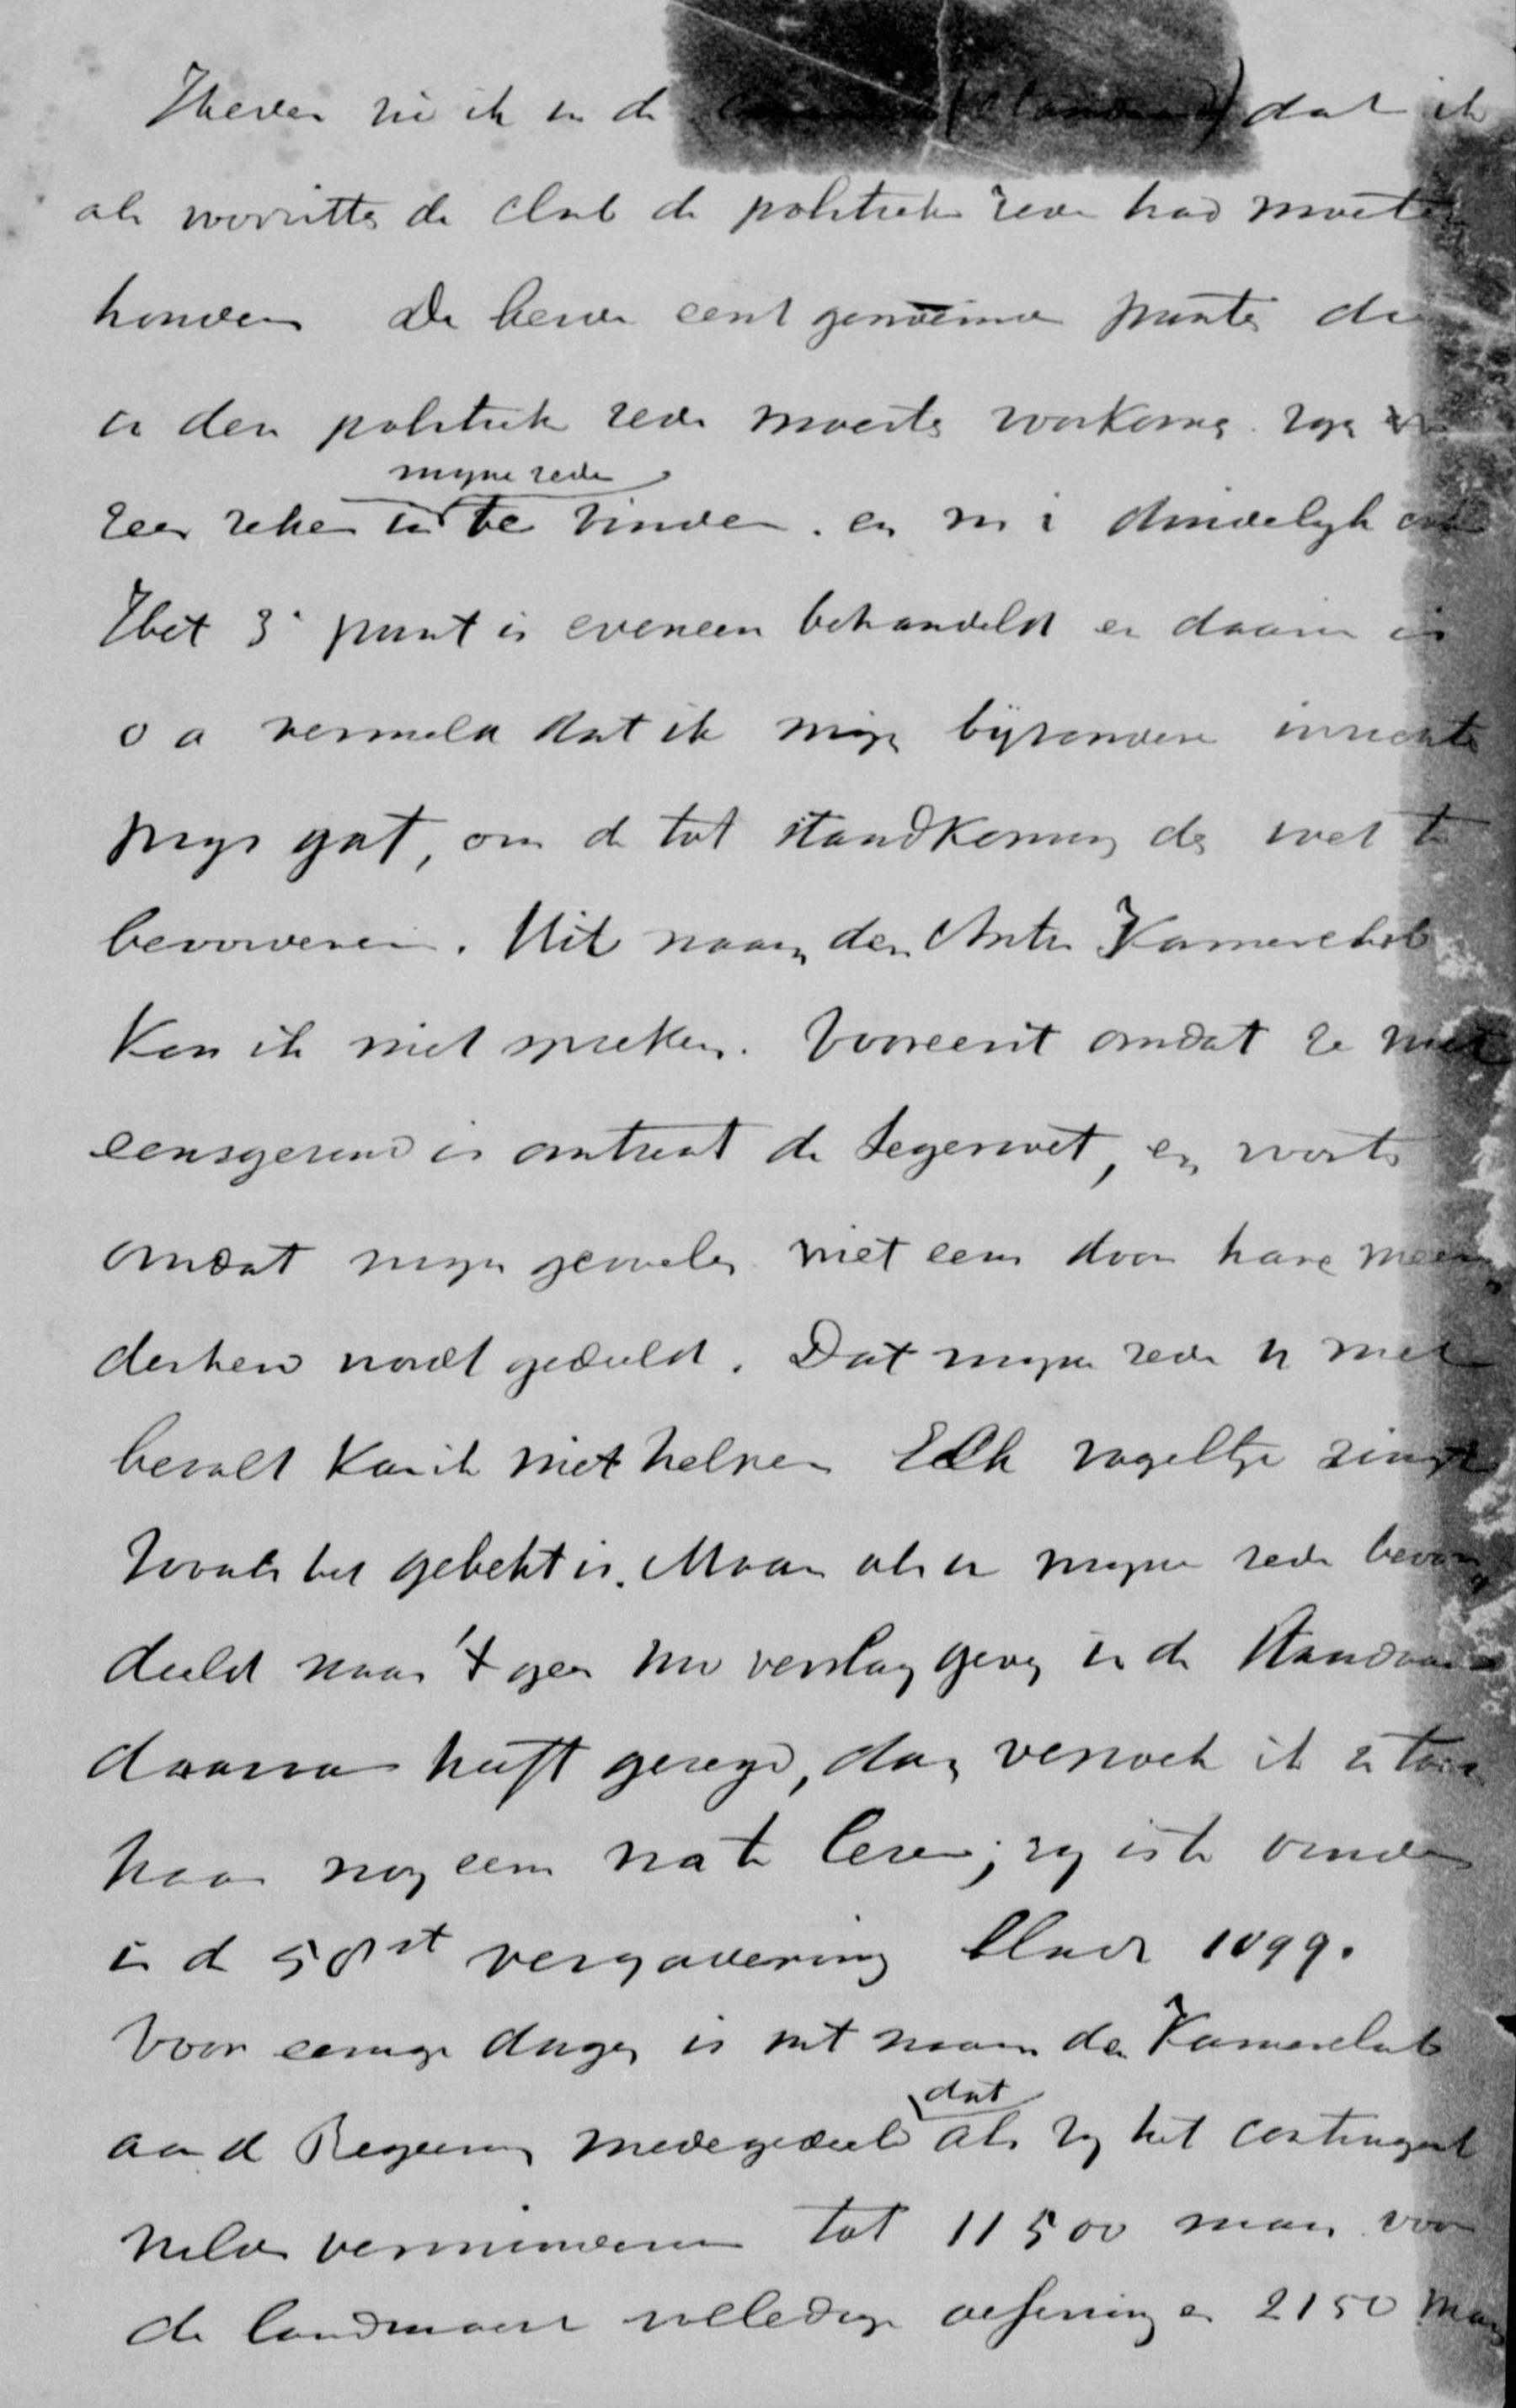 Heden zie ik in de (Standaard) dat ik
als voorzitter der club de politieke rede had moeten
houden De beide eerst genoemde punten die
in den politieke rede moesten voorkomen zijn
zeer zeker in mijne rede te vinden. en m i duidelijk ook
Het 3e punt is eveneens behandeld en daarin is
o a vermeld dat ik mijn bijzondere inzichten
prijs gaf, om de tot standkoming der wet te
bevorderen. Uit naam der Antir Kamerclub
kon ik niet spreken. Vooreerst omdat ze niet
eensgezind is omtrent de Legerwet, en voorts
omdat mijn gevoelen niet eens door hare meer
derheid wordt gedeeld. Dat mijne rede u niet
bevalt kan ik niet helpen Elk vogeltje zingt
zooals het gebekt is. Maar als u mijne rede beoor
deeld naar 't geen uw verslaggever in de Standaard
daarvan heeft gezegd, dan verzoek ik u toch
haar nog eens na te lezen; zij is te vinden
in d 58st vergadering bladz 1099.
Voor eenige dagen is uit naam der Kamerclub
aan d Regeering medegedeeld dat als zij het contingent
wilde verminderen tot 11500 man voor
de landmacht volledige oefening en 2150 man